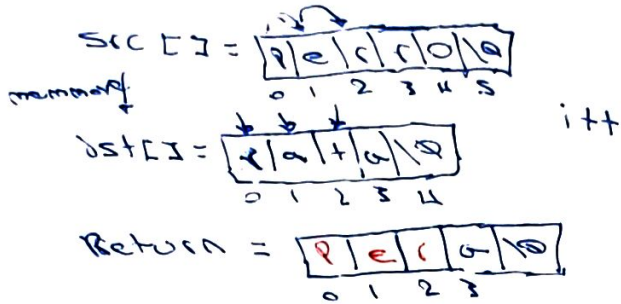 src [ ] = |P|e|r|r|o|\0|
0 1 2 3 4 5
memmove
i++
dst[ ] = |P|a|t|a|\0|
0 1 2 3 4
Return = |P|e|r|a|\0|
0 1 2 3